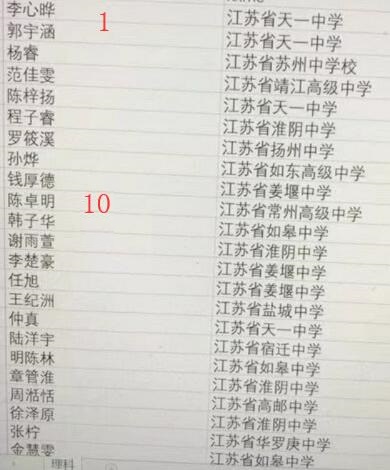 李心晔 1 江苏省天一中学
郭宇涵 江苏省天一中学
杨睿 江苏省苏州中学校
范佳雯 江苏省靖江高级中学
陈梓扬 江苏省天一中学
程子睿 江苏省淮阴中学
罗筱溪 江苏省扬州中学
孙烨 江苏省如东高级中学
钱厚德 江苏省姜堰中学
陈卓明 10 江苏省常州高级中学
韩子华 江苏省如皋中学
谢雨萱 江苏省淮阴中学
李楚豪 江苏省姜堰中学
任旭 江苏省姜堰中学
王纪洲 江苏省盐城中学
仲真 江苏省天一中学
陆洋宇 江苏省宿迁中学
明陈林 江苏省如皋中学
章管淮 江苏省淮阴中学
周湉恬 江苏省高邮中学
徐泽原 江苏省淮阴中学
张柠 江苏省华罗庚中学
金慧雯 江苏省如皋中学
理科